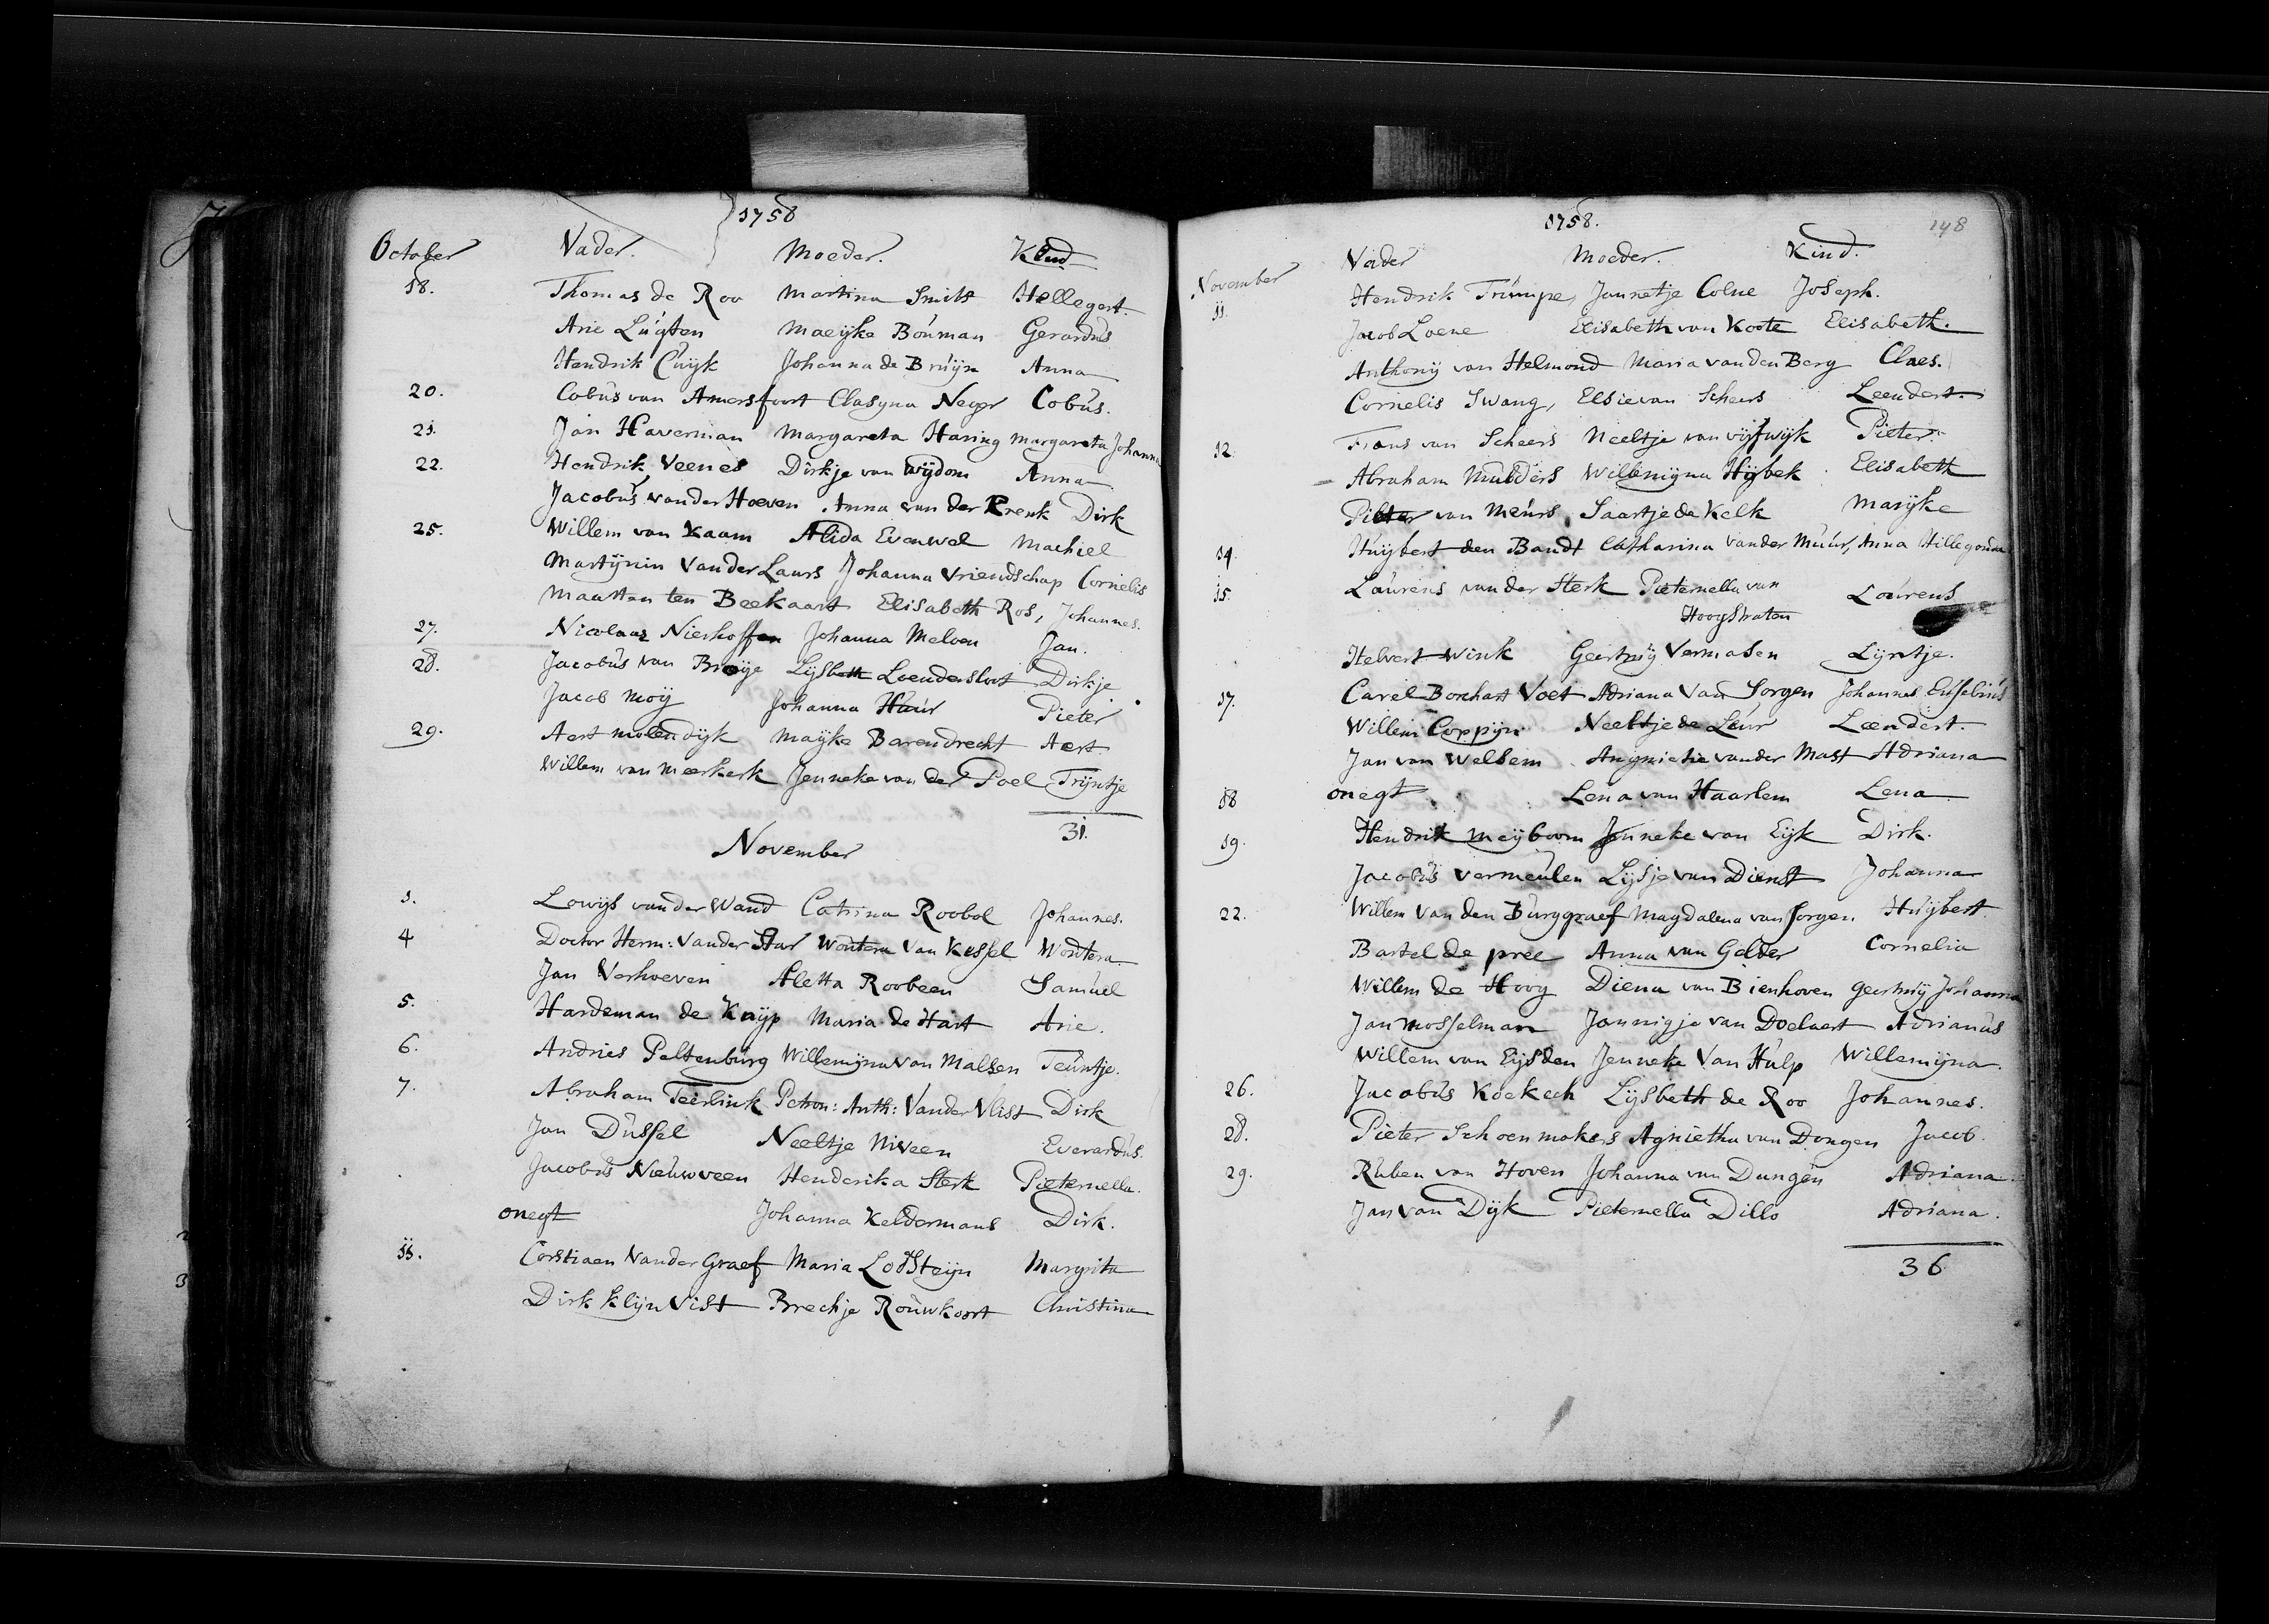 1758
October Vader. Moeder. Kind
18. Thomas de Roo Martina Smits Hellegert.
Arie Lugten Maeijke Bouman Gerardus
Hendrik Cuijk Johanna de Bruijn Anna
20. Cobus van Amersfoort Clasyna Neger Cobus.
21. Jan Haverman Margareta Haring Margareta Johanna
22. Hendrik Veenes Dirkje van Wijdom Anna
Jacobus vander Hoeven Anna van der Krenk Dirk
25. Willem van Kaam Alida Evenwel Machiel
Martijnin Vander Laurs Johanna Vriendschap Cornelis
Maarten ten Beekaart Elisabeth Ros, Johannes.
27. Nicolaas Nierhoffen Johanna Meloen Jan.
28. Jacobus van Broije Lijsbeth Loendersloot Dirkje
Jacob Moij Johanna Huur Pieter
29. Aert Molendijk Maijke Barendrecht Aert
Willem van Meerkerk Jenneke van der Poel Trijntje
31.
November
1. Lowijs vander Wand Catrina Roobol Johannes.
4 Doctor Herm: Vander Star Woutera Van Kessel Woutera
Jan Verhoeven Aletta Roobeen Samuel
5. Hardeman de Knijp Maria de Hart Arie.
6. Andries Peltenburg Willemijna van Malsen Teuntje.
7. Abraham Teerlink Petron: Anth: Vander Vlist Dirk
Jan Dussel Neeltje Niveen Everardus.
Jacobus Nieuwveen Henderika Sterk Pieternella.
onegt Johanna Keldermans Dirk.
11. Corstiaen Vander Graef Maria Lodsteijn Margrita
Dirk Klijn Vist Brechje Rouwkoort Christina
1758. 148
Vader Moeder. Kind.
November
11. Hendrik Trumpe, Jannetje Colue Joseph.
Jacob Loene Elisabeth van Koote Elisabeth.
Anthonij van Helmond Maria vanden Berg Claes.
Cornelis Swang, Elsie van Scheers Leendert
12. Frans van Scheers Neeltje van Vijfwijk Pieter
Abraham Mulders Willemijna Hijbek Elisabeth
Pieter van Meurs, Saartje de Kelk Marijke
14. Huijbert den Bandt Catharina vander Muur, Anna Hillegonda
15. Laurens vander Sterk Pieternella van Laurens
Hoogstraten
Helvert Wink Geertruij Vermasen Lijntje.
17. Carel Borchart Voet Adriana Van Sorgen Johannes Eusebius
Willem Coppijn Neeltje de Leur Leendert.
Jan van Welsem Angnietie vander Mast Adriana
18 onegt Lena van Haarlem Lena
19. Hendrik Meijboom Jenneke van Eijk Dirk.
Jacobus Vermeulen Lijsje van Dienst Johanna
22. Willem Van den Burggraef Magdalena van Sorgen Huijbert
Bartel de pree Anna van Gelder Cornelia
Willem de Hoog Diena van Bienhoven Geertruij Johanna
Jan Mosselman Jannigje van Doelaert Adrianus
Willem van Eijsden Jenneke Van Hulp Willemijna.
26. Jacobus Koekech Lijsbeth de Roo Johannes.
28. Pieter Schoenmakers Agnietha van Dongen Jacob.
29. Ruben van Hoven Johanna van Dungen Adriana
Jan van Dijk Pieternella Dillo Adriana.
36